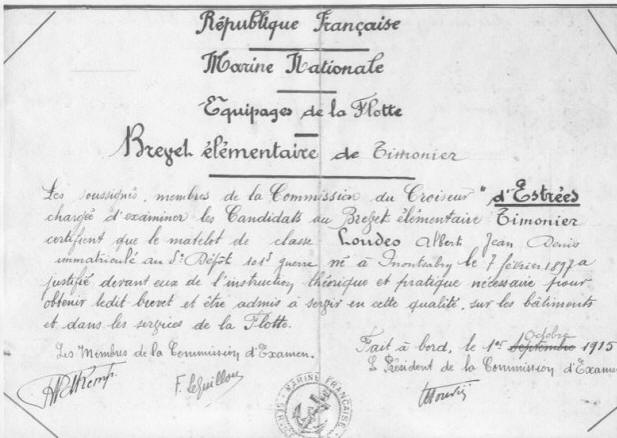 République Française
Marine Nationale
Equipages de la Flotte
Brevet élémentaire de Timonier
Les soussignés, membres de la Commission du Croiseur "d'Estrées
chargée d'examiner les Candidats au Brevet élémentaire Timonier
certifient que le matelot de classe Loudes Albert Jean Denis
immatriculé au 5e Dépôt guerre né à le 7 février 1897 a
justifié devant eux de l'instruction théorique et pratique nécessaire pour
obtenir ledit brevet et être admis à servir en cette qualité, sur les bâtiments
et dans les services de la Flotte.
Les Membres de la Commission d'Examen.
Fait à bord, le 1er Septembre Octobre 1915
Le Président de la Commission d'Examen
F. LeGuillou
MARINE FRANÇAISE